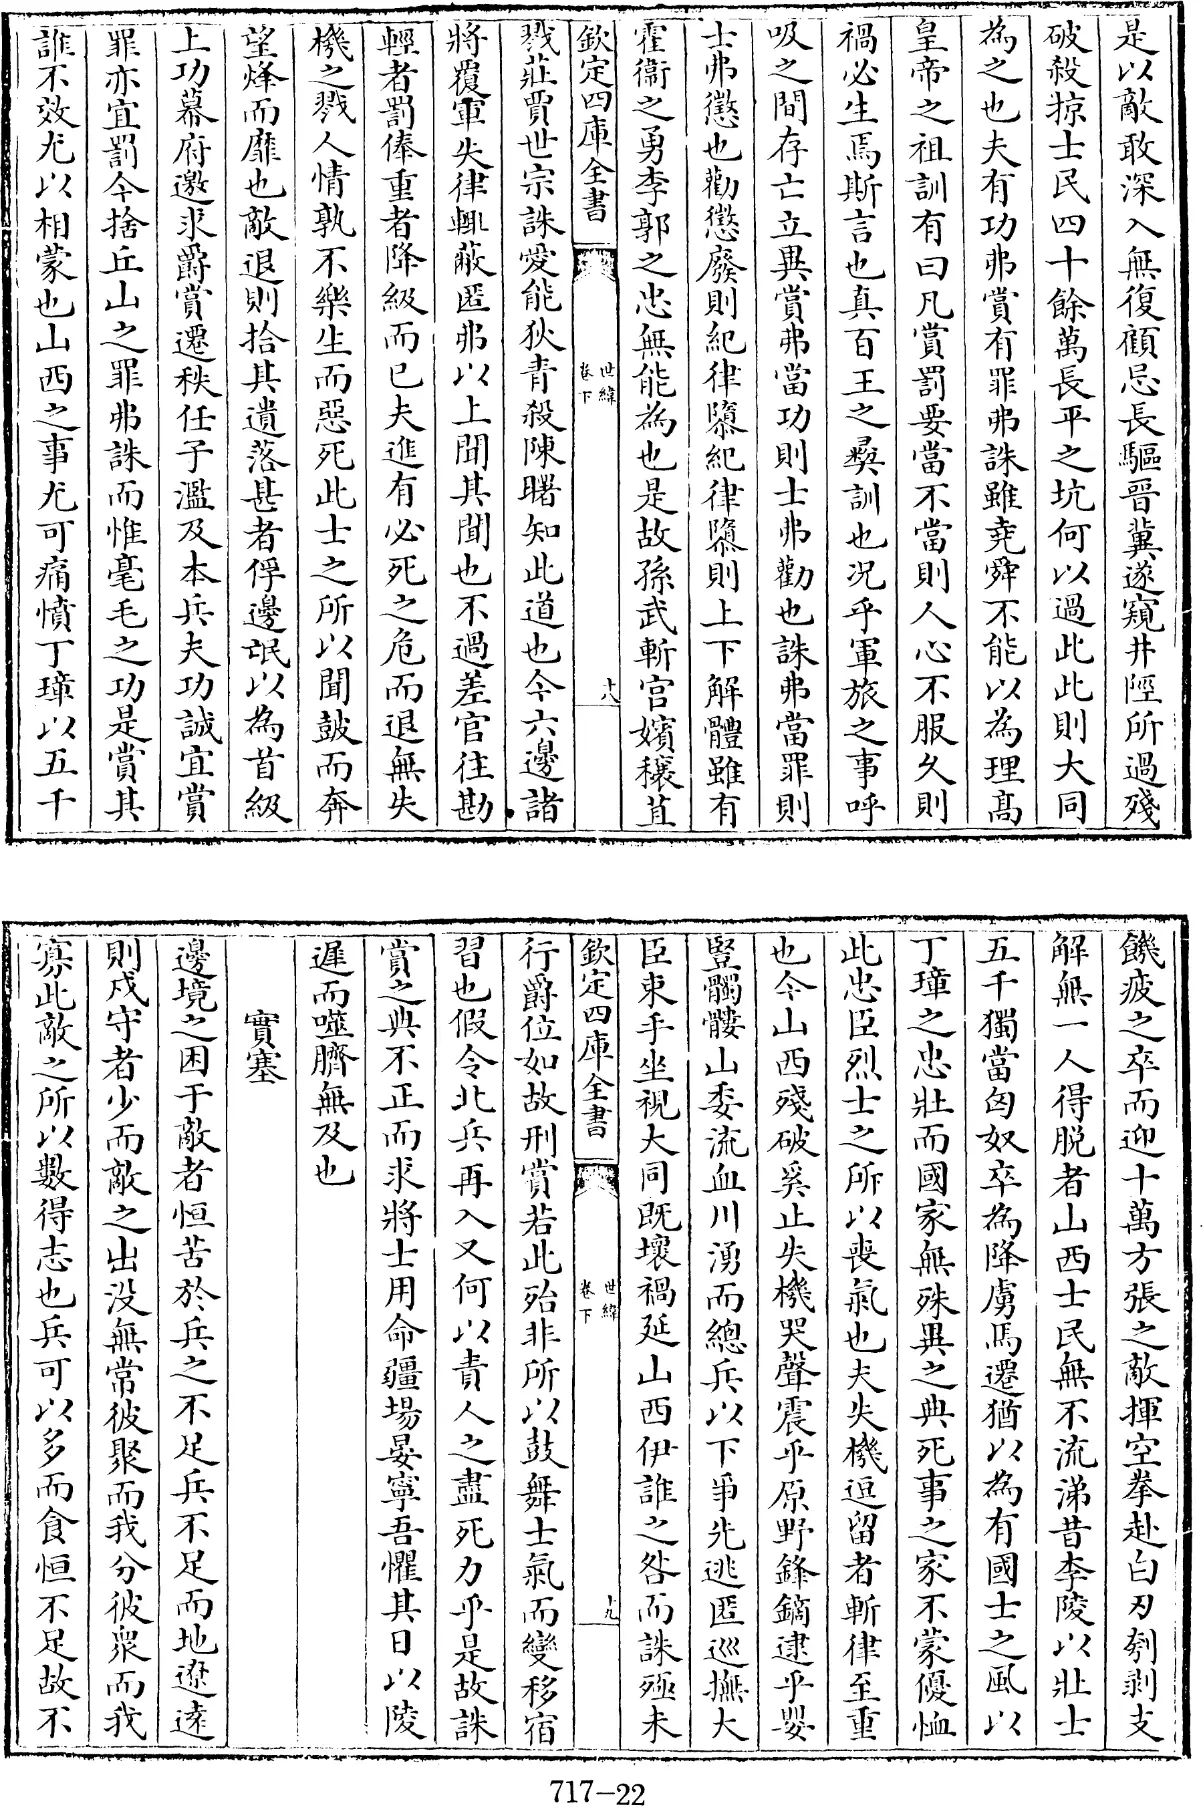 是以敵敢深入無復顧忌長驅晉冀遂窺井陘所過殘
破殺掠士民四十餘萬長平之坑何以過此此則大同
為之也夫有功弗賞有罪弗誅雖堯舜不能以為理髙
皇帝之祖訓有曰凡賞罰要當不當則人心不服久則
禍必生焉斯言也真百王之彞訓也况乎軍旅之事呼
吸之間存亡立異賞弗當功則士弗勸也誅弗當罪則
士弗懲也勸懲廢則紀律隳紀律隳則上下解體雖有
霍衞之勇李郭之忠無能為也是故孫武斬宫嬪穰苴
欽定四庫全書
世緯
卷下
十八
戮莊賈世宗誅愛能狄青殺陳曙知此道也今六邊諸
將覆軍失律輒蔽匿弗以上聞其聞也不過差官往勘
輕者罰俸重者降級而已夫進有必死之危而退無失
機之戮人情孰不樂生而惡死此士之所以聞鼓而奔
望烽而靡也敵退則拾其遺落甚者俘邊氓以為首級
上功幕府邀求爵賞遷秩任子濫及本兵夫功誠宜賞
罪亦宜罰今捨丘山之罪弗誅而惟毫毛之功是賞其
誰不效尤以相蒙也山西之事尤可痛憤丁璋以五千
饑疲之卒而迎十萬方張之敵揮空拳赴白刃刳剥支
解無一人得脱者山西士民無不流涕昔李陵以壯士
五千獨當匈奴卒為降虜馬遷猶以為有國士之風以
丁璋之忠壯而國家無殊異之典死事之家不蒙優恤
此忠臣烈士之所以喪氣也夫失機逗留者斬律至重
也今山西殘破奚止失機哭聲震乎原野鋒鏑逮乎嬰
豎髑髏山委流血川湧而總兵以下爭先逃匿巡撫大
臣束手坐視大同既壞禍延山西伊誰之咎而誅殛未
欽定四庫全書
世緯
卷下
十九
行爵位如故刑賞若此殆非所以鼓舞士氣而變移宿
習也假令北兵再入又何以責人之盡死力乎是故誅
賞之典不正而求將士用命疆場晏寧吾懼其日以陵
遲而噬臍無及也
實塞
邊境之困于敵者恒苦於兵之不足兵不足而地遼遠
則戍守者少而敵之出没無常彼聚而我分彼衆而我
寡此敵之所以數得志也兵可以多而食恒不足故不
717-22